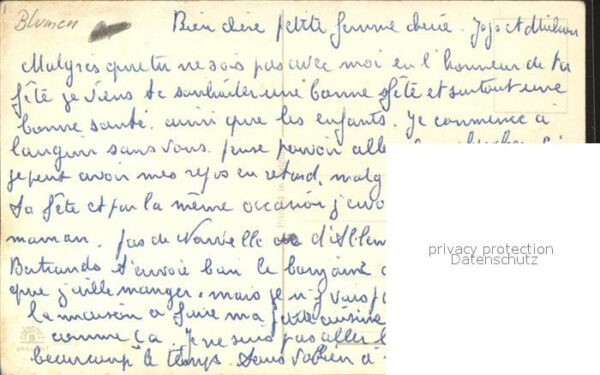 Blumen
Bien chère petite femme cherie. Jojo et
Malgres que tu ne sois pas avec moi en l'honneur de ta
fête je viens te souhaiter une bonne fête et surtout une
bonne santé. ainsi que les enfants. Je commence à
languir sans vous. pense pouvoir aller
je peut avoir mes repos en retard,
Sa fête et par la même occasion j'
maman. pas de Nouvelle d'
t'envoie bien le bonjour
que j'aille manger. mais je n'y vais
la maison a faire ma petite cuisine
comme ça. Je ne suis pas aller
beaucoup le temps. Sans
privacy protection
Datenschutz